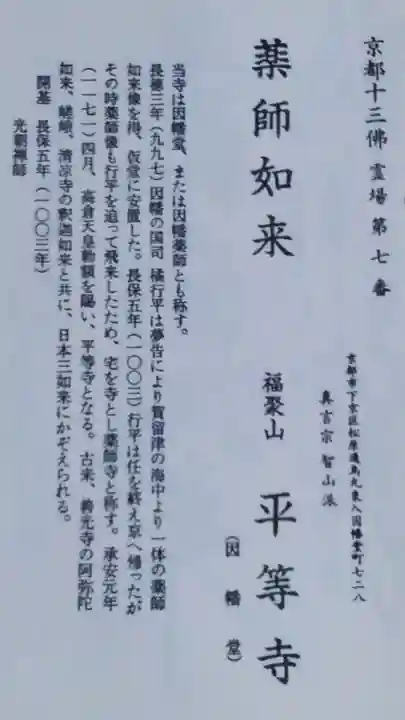 京都十三佛霊場第七番
薬師如来
京都市下京区松原通烏丸東入因幡堂町七二八
真言宗智山派
福聚山 平等寺
(因幡堂)
当寺は因幡堂、または因幡薬師とも称す。
長徳三年(九九七)因幡の国司 橘行平は夢告により賀留津の海中より一体の薬師
如来像を得、仮堂に安置した。長保五年(一〇〇三)行平は任を終え京へ帰ったが
その時薬師像も行平を追って飛来したため、宅を寺とし薬師寺と称す。承安元年
(一一七一)四月、高倉天皇勅額を賜い、平等寺となる。古来、善光寺の阿弥陀
如来、嵯峨、清凉寺の釈迦如来と共に、日本三如来にかぞえられる。
開基 長保五年(一〇〇三年)
光朝禅師